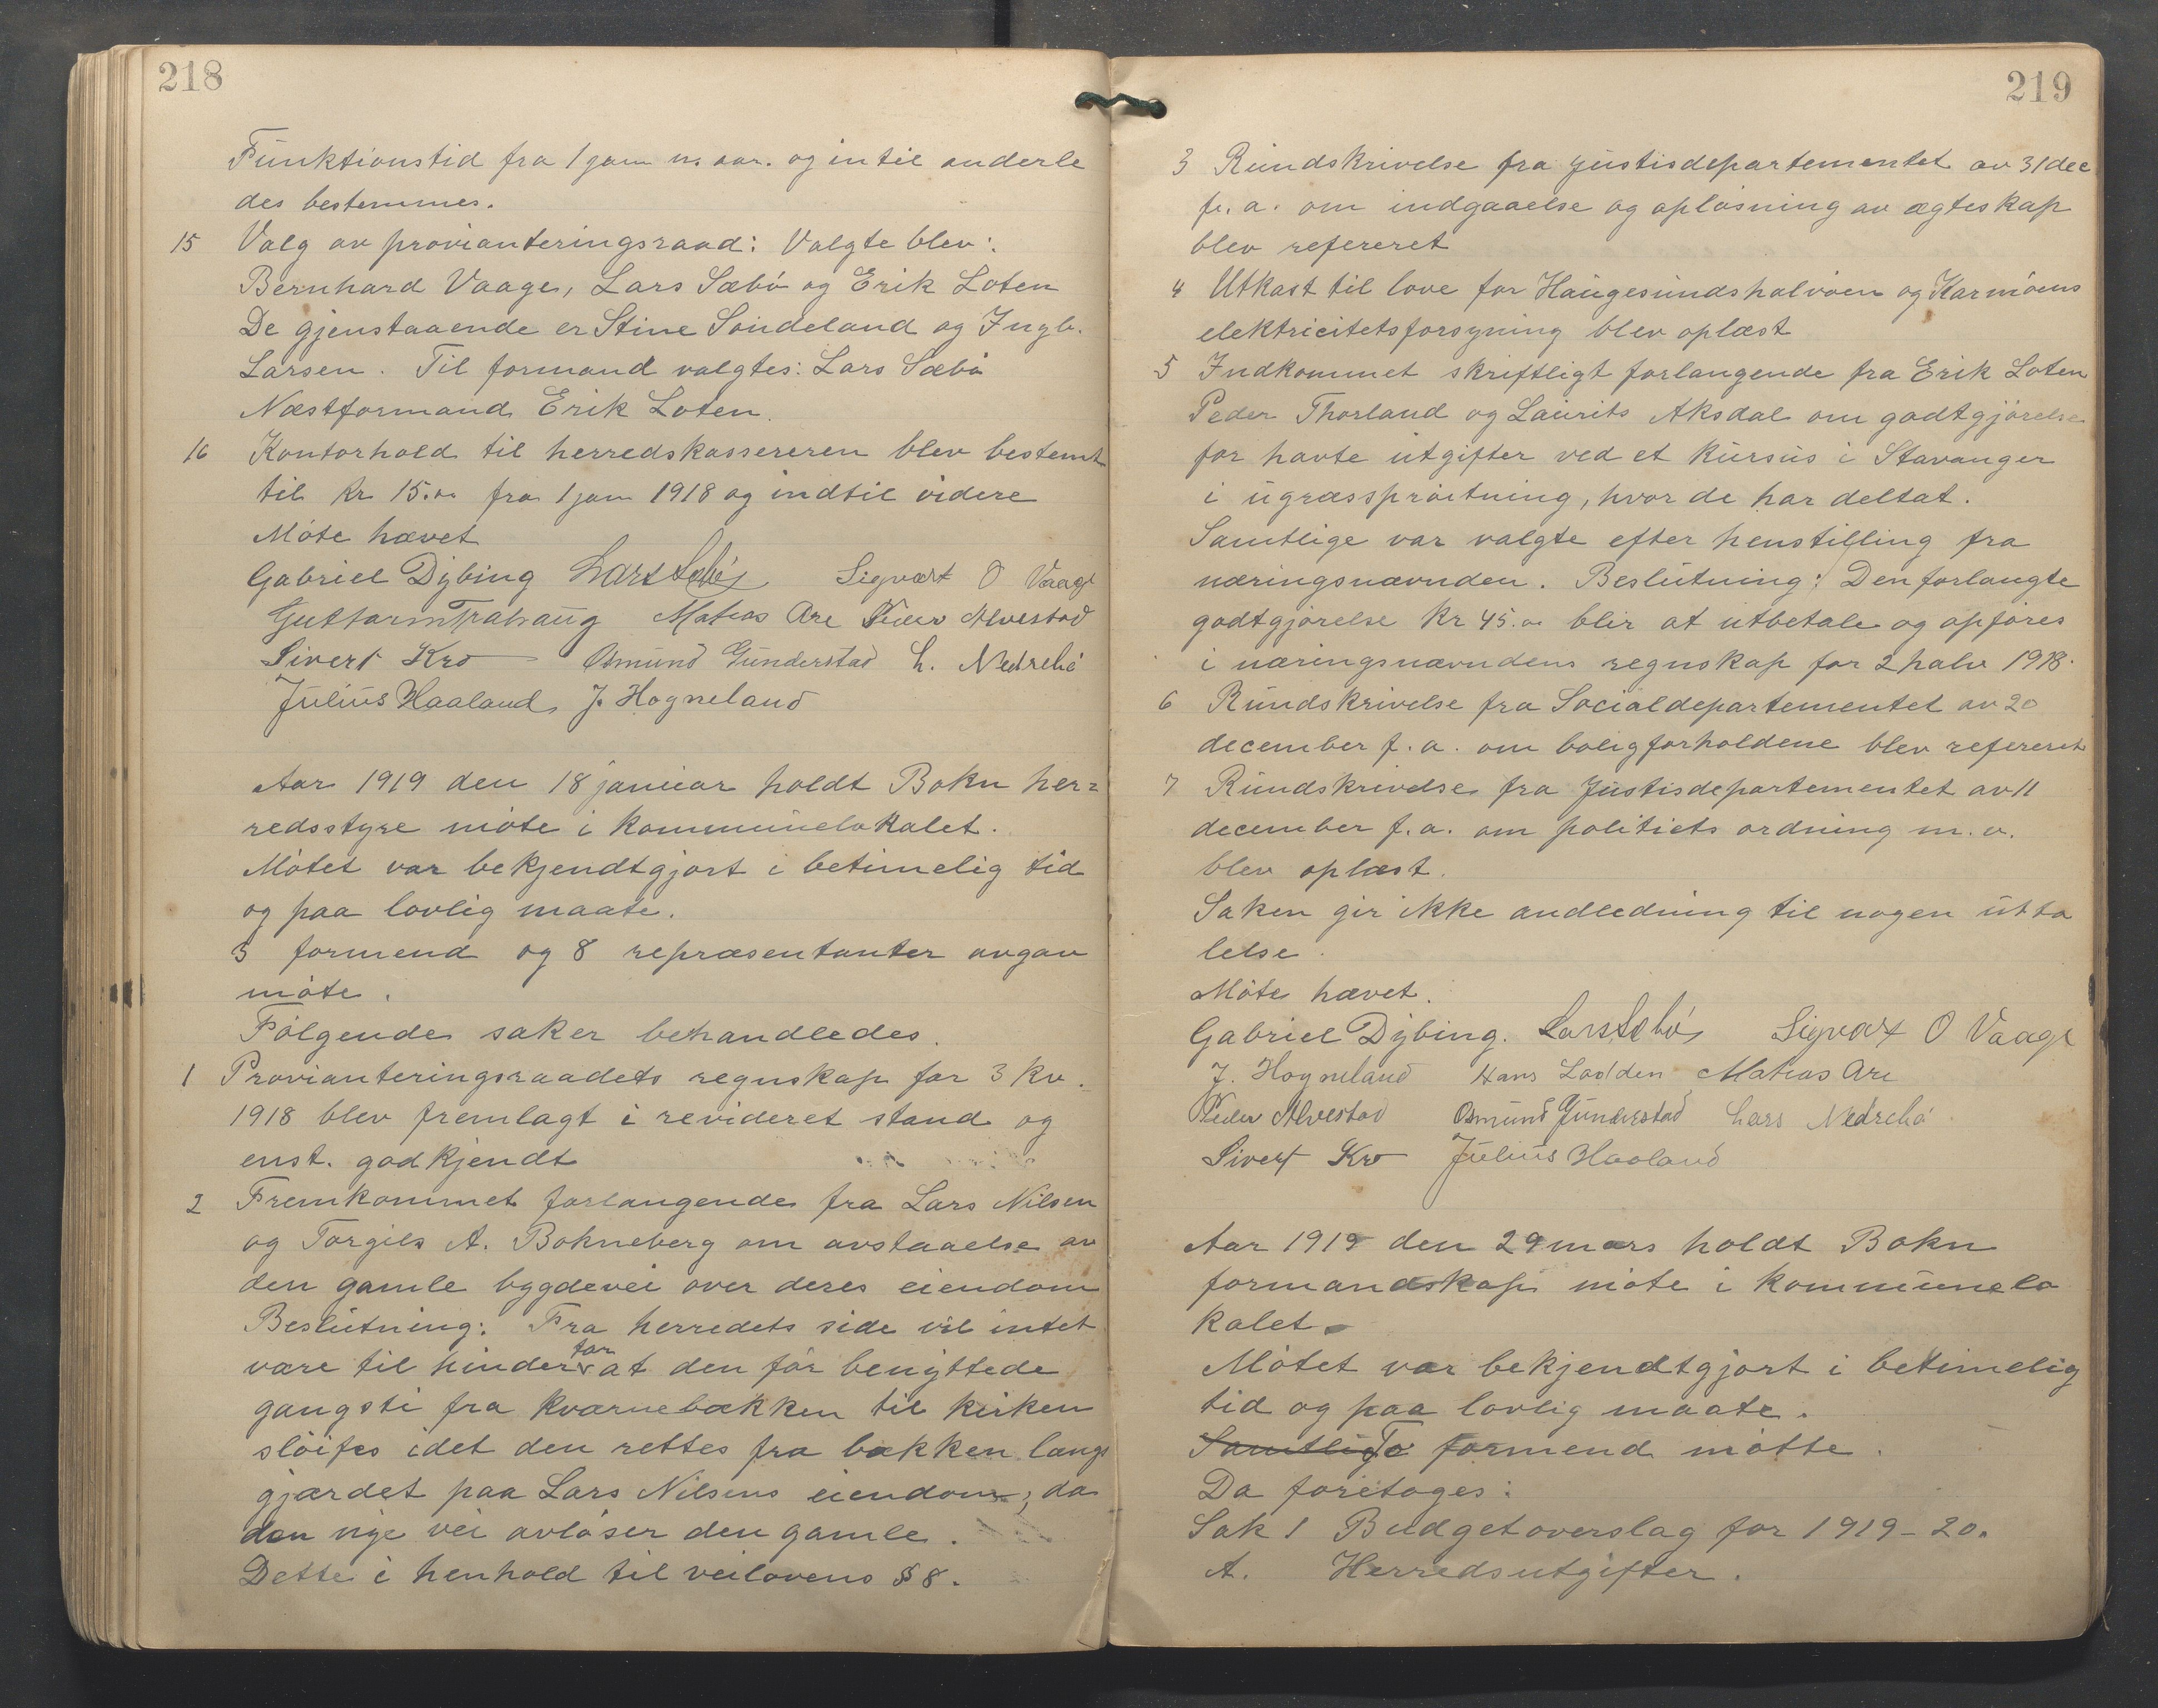 218
Funktionstid fra 1 jan n. aar. og intil anderle
des bestemmes.
15 Valg av provianteringsraad: Valgte blev:
Bernhard Vaage, Lars Sæbö og Erik Loten
De gjenstaaende er Stine Söndeland og Ingb.
Larsen. Til formand valgtes: Lars Sæbö
Næstformand Erik Loten.
16 Kontorhold til herredskassereren blev bestemt
til kr 15.oo fra 1 jan 1918 og indtil videre
Möte hævet
Gabriel Dybing Lars Sæbö Sigvart O Vaage
Guttorm Trahaug Matias Are Peder Alvestad
Sivert Kro Osmund Gunderstad L. Nedrebö
Julius Haaland J. Hogneland
Aar 1919 den 18 januar holdt Bokn her=
redsstyre möte i kommunelokalet.
Mötet var bekjendtgjort i betimelig tid
og paa lovlig maate.
3 formend og 8 repræsentanter avgav
möte.
Fölgende saker behandledes.
1 Provianteringsraadets regnskap for 3 kv.
1918 blev fremlagt i revideret stand og
enst. godkjendt
2 Fremkommet forlangende fra Lars Nilsen
og Torgils A. Bokneberg om avstaaelse av
den gamle bygdevei over deres eiendom
Beslutning: Fra herredets side vil intet
være til hinder for at den för benyttede
gangsti fra kværnebækken til kirken
slöifes idet den rettes fra bækken langs
gjærdet paa Lars Nilsens eiendom; da
den nye vei avlöser den gamle.
Dette i henhold til veilovens § 8.
219
3 Rundskrivelse fra justisdepartementet av 31 dec
f. a. om indgaaelse og oplösning av ægteskap
blev refereret
4 Utkast til love for Haugesundshalvöen og Karmöens
elektricitetsforsyning blev oplæst
5 Indkommet skriftligt forlangende fra Erik Loten
Peder Thorland og Laurits Aksdal om godtgjörelse
for havte utgifter ved et kursus i Stavanger
i ugræsspröitning, hvor de har deltat.
Samtlige var valgte efter henstilling fra
næringsnævnden. Beslutning: Den forlangte
godtgjörelse kr 45.oo blir at utbetale og opföres
i næringsnævndens regnskap for 2 halv 1918.
6 Rundskrivelse fra Socialdepartementet av 20
december f. a. om boligforholdene blev refereret
7 Rundskrivelse fra Justisdepartementet av 11
december f. a. om politiets ordning m. v.
blev oplæst.
Saken gir ikke andledning til nogen utta
lelse.
Möte hævet.
Gabriel Dybing. Lars Sæbö Sigvart O Vaage
J. Hogneland Hans Lodden Matias Are
Peder Alvestad Osmund Gunderstad Lars Nedrebö
Sivert Kro Julius Haaland
Aar 1919 den 29 mars holdt Bokn
formandskap möte i kommunelo
kalet.
Mötet var bekjendtgjort i betimelig
tid og paa lovlig maate.
Samtlige To formend mötte.
Da foretoges:
Sak 1 Budgetoverslag for 1919-20.
A. Herredsutgifter.